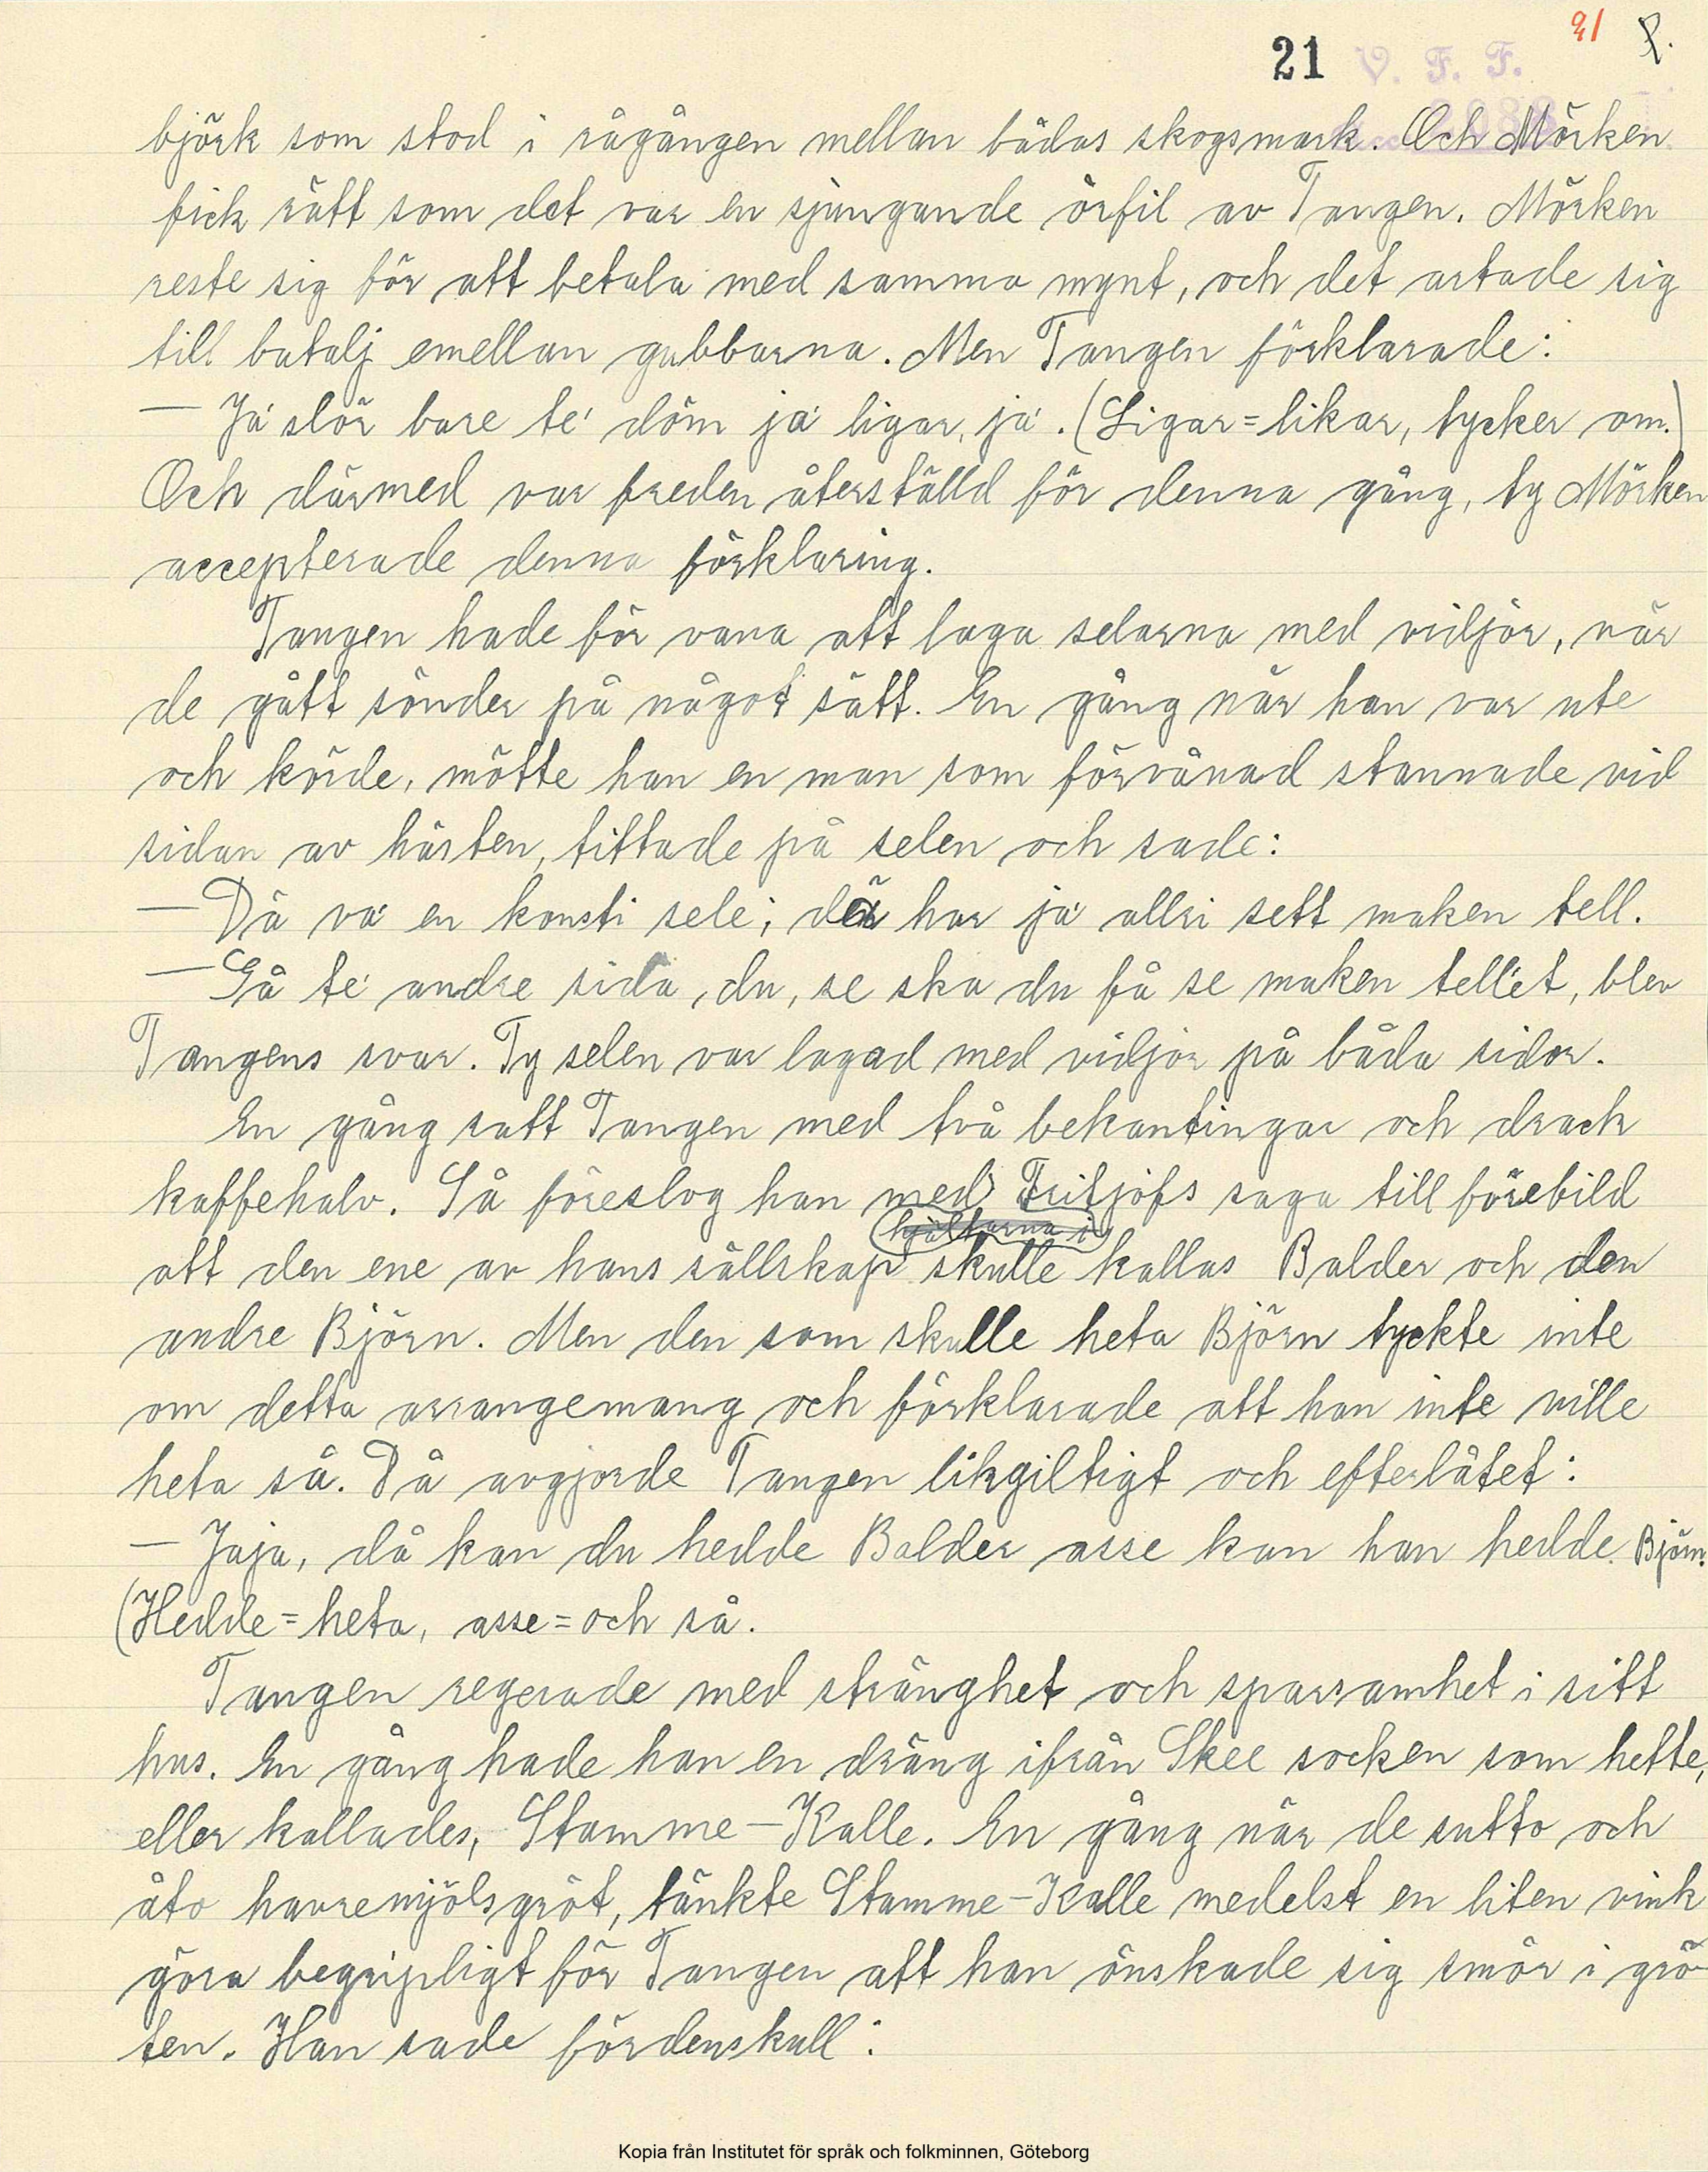 21 V. F. F. 21 P.
björk som stod i rågången mellan bådas skogsmark. Och Mörken
fick rätt som det var en sjungande örfil av Tangen. Mörken
reste sig för att betala med samma mynt, och det artade sig
till batalj emellan gubbarna. Men Tangen förklarade:
— Ja' slör bare te' döm ja' ligar, ja'. (Ligar = likar, tycker om.)
Och därmed var freden återställd för denna gång, ty Mörken
accepterade denna förklaring.
Tangen hade för vana att laga selarna med vidjor, när
de gått sönder på något sätt. En gång när han var ute
och körde, mötte han en man som förvånad stannade vid
sidan av hästen, tittade på selen och sade:
— Dä va' en konsti sele; där har ja' allri sett maken tell.
— Gå te' andre sida, du, se ska du få se maken tell'et, blev
Tangens svar. Ty selen var lagad med vidjor på båda sidor.
En gång satt Tangen med två bekantingar och drack
kaffehalv. Så föreslog han med Fritjofs saga till förebild
hjältarna i
att den ene av hans sällskap skulle kallas Balder och den
andre Björn. Men den som skulle heta Björn tyckte inte
om detta arrangemang och förklarade att han inte ville
heta så. Då avgjorde Tangen likgiltigt och efterlåtet:
— Jaja, då kan du hedde Balder asse kan han hedde Björn.
(Hedde = heta, asse = och så.
Tangen regerade med stränghet och sparsamhet i sitt
hus. En gång hade han en dräng ifrån Skee socken som hette,
eller kallades, Stamme-Kalle. En gång när de sutto och
åto havremjölsgröt, tänkte Stamme-Kalle medelst en liten vink
göra begripligt för Tangen att han önskade sig smör i grö-
ten. Han sade fördenskull:
Kopia från Institutet för språk och folkminnen, Göteborg